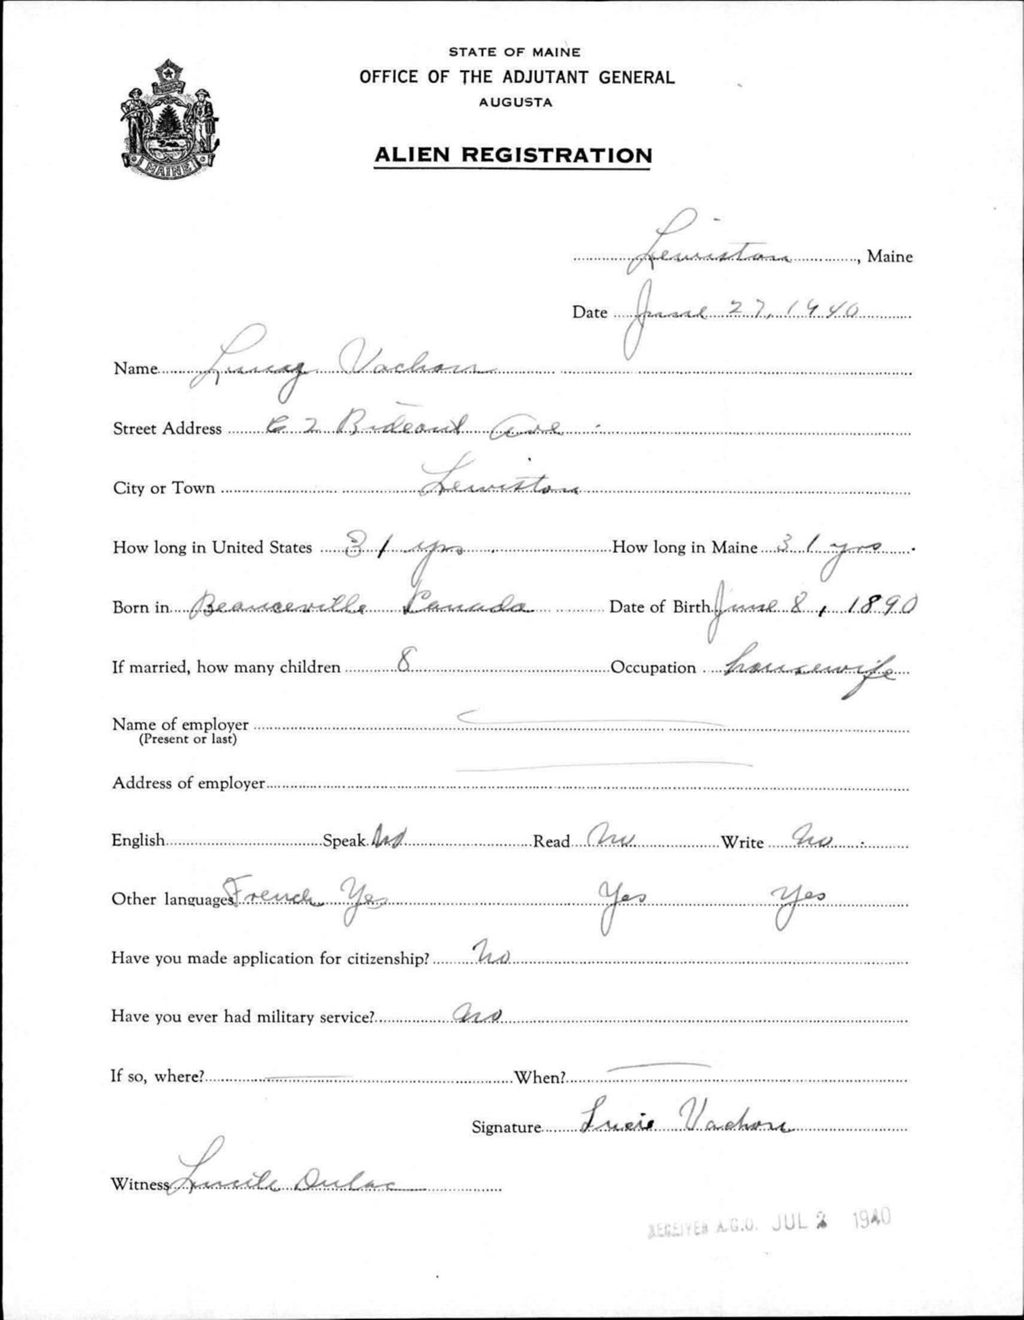 STATE OF MAINE
OFFICE OF THE ADJUTANT GENERAL
AUGUSTA
ALIEN REGISTRATION
MAINE
Lewiston, Maine
Date June 27, 1940
Name Lucy Vachon
Street Address 62 Rideout Ave
City or Town Lewiston
How long in United States 31 yrs How long in Maine 31 yrs
Born in Beauceville Canada Date of Birth June 8, 1890
If married, how many children 8 Occupation housewife
Name of employer
(Present or last)
Address of employer
English Speak No Read No Write No
Other languages French Yes Yes Yes
Have you made application for citizenship? No
Have you ever had military service? No
If so, where? When?
Signature Lucie Vachon
Witness Lucile Dulac
RECEIVED A.G.O. JUL 2 1940